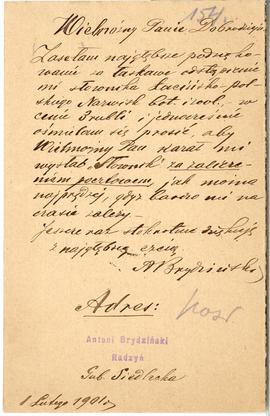 154
Wielmożny Panie Dobrodzieju
Zasełam najgłębsze podzięko-
wanie za łaskawe odstąpienie
mi słownika Łacińsko-pol-
skiego Nazwisk bot. i zool., w
cenie 3 rubli i jednocześnie
ośmielam się prosić, aby
Wielmożny Pan kazał mi
wysłać Słownik za zalicze-
niem pocztowem, jak można
najprędzej, gdyż bardzo mi na
czasie zależy.
Jeszcze raz stokrotnie dziękuję
z najgłębszą czcią
A Brydziński
Adres:
Antoni Brydziński
Radzyń
Gub. Siedlecka
1 Lutego 1901 r.